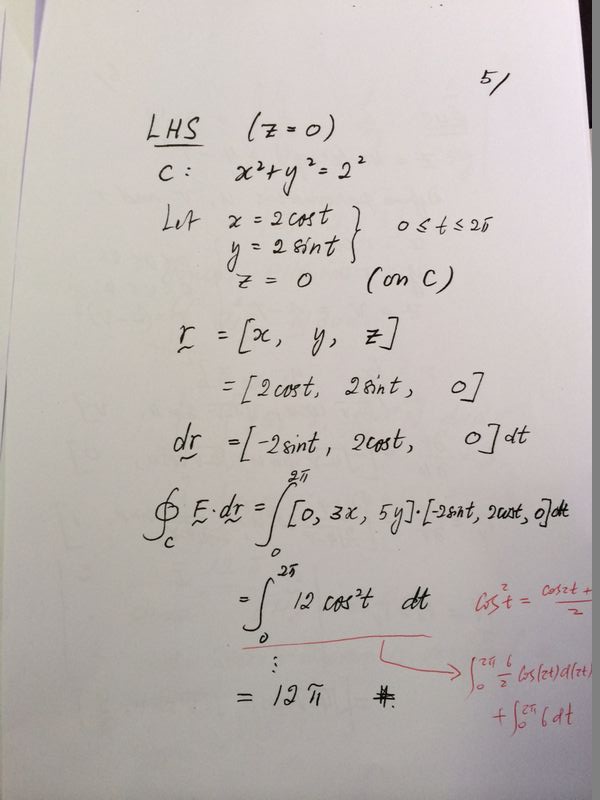 5/
LHS (z = 0)
C: x² + y² = 2²
Let x = 2cost } 0 ≤ t ≤ 2π
y = 2sint
z = 0 (on C)
r = [x, y, z]
= [2cost, 2sint, 0]
dr = [-2sint, 2cost, 0]dt
∮_C F·dr = ∫₀^2π [0, 3x, 5y]·[-2sint, 2cost, 0]dt
= ∫₀^2π 12 cos²t dt
cos²t = cos2t + / 2
⋮
∫₀^2π 6/2 cos(2t)d(2t)
+ ∫₀^2π 6dt
= 12π #